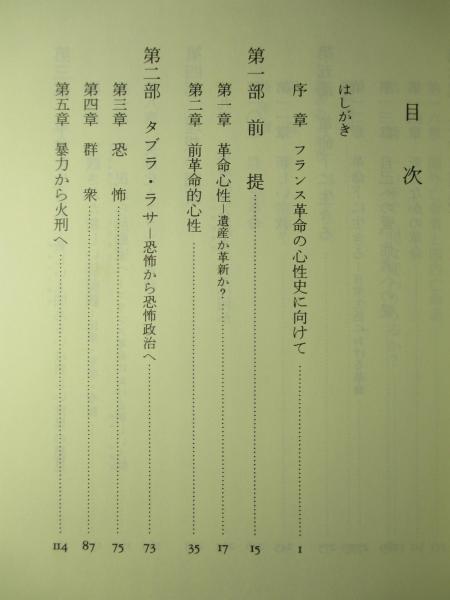 目次
はしがき
序章 フランス革命の心性史に向けて……1
第一部 前提……15
第一章 革命心性―遺産か革新か?……17
第二章 前革命的心性……35
第二部 タブラ・ラサ―恐怖から恐怖政治へ……73
第三章 恐怖……75
第四章 群衆……87
第五章 暴力から火刑へ……114